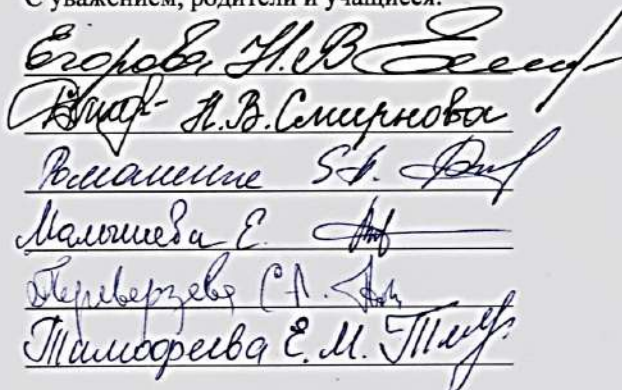 С уважением, родители и учащиеся.
Егорова Н.В.
Н.В. Смирнова
Романенко
Малышева Е.
Переверзева С.А.
Тимофеева Е.М.